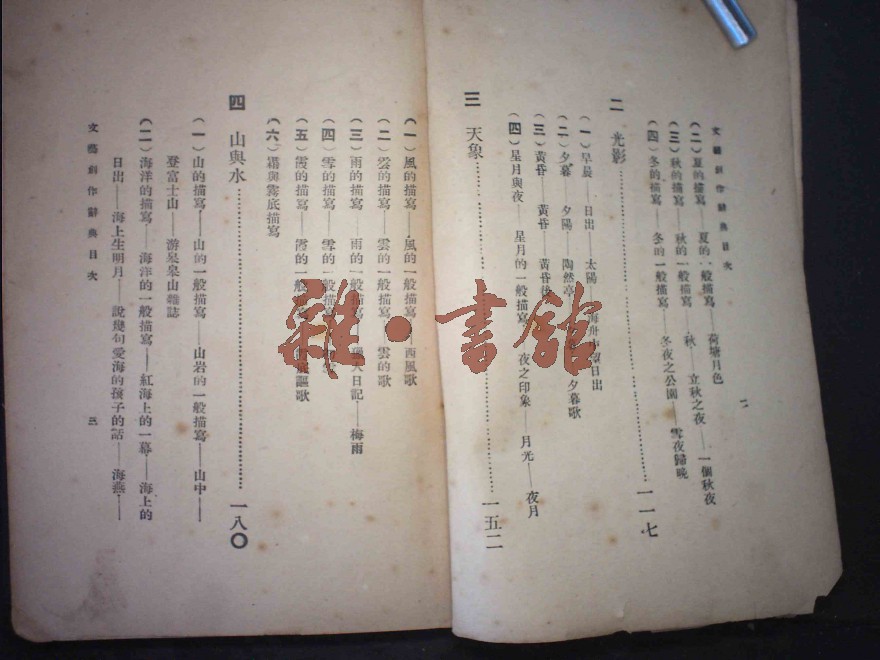 文藝創作辭典目次 二
(二)夏的描寫——夏的一般描寫——荷塘月色
(三)秋的描寫——秋的一般描寫——秋——立秋之夜——一個秋夜
(四)冬的描寫——冬的一般描寫——冬夜之公園——雪夜歸晚
二 光影……一一七
(一)早晨——日出——太陽——海舟中望日出
(二)夕暮——夕陽——陶然亭 夕暮歌
(三)黃昏——黃昏——黃昏
(四)星月與夜——星月的一般描寫——夜之印象——月光——夜月
三 天象……一五二
(一)風的描寫——風的一般描寫——西風歌
(二)雲的描寫——雲的一般描寫——雲的歌
(三)雨的描寫——雨的一般描寫 日記——梅雨
(四)雪的描寫——雪的一般描寫
(五)霞的描寫——霞的一般 謳歌
(六)霜與霧底描寫
四 山與水……一八〇
(一)山的描寫——山的一般描寫——山岩的一般描寫——山中——
登富士山——游泉山雜誌
(二)海洋的描寫——海洋的一般描寫——紅海上的一幕——海上的
日出——海上生明月——說幾句愛海的孩子的話——海燕——
文藝創作辭典目次 三
雜·書館